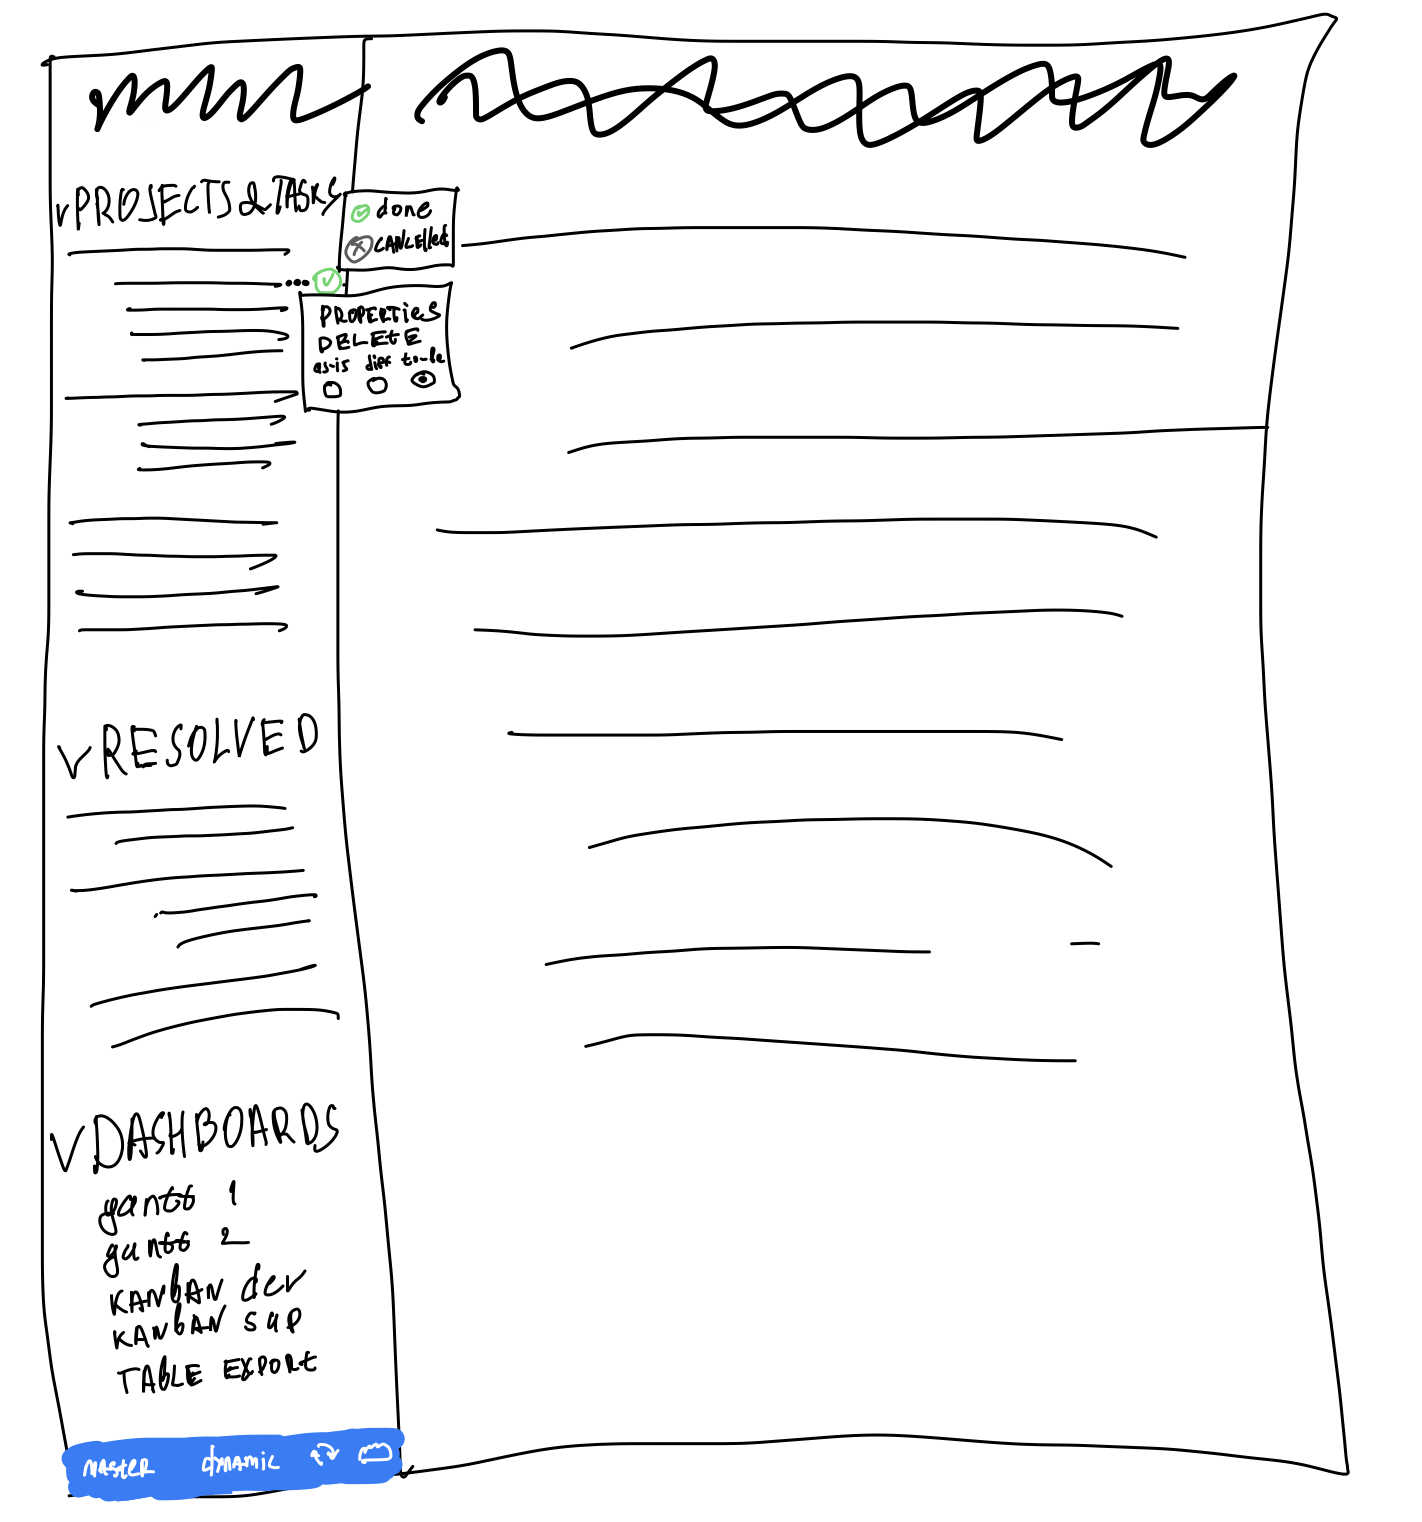 PROJECTS & TASKS
done
CANCElled
PROPERTieS
DELETE
as-is diff to-be
RESOLVED
DASHBOARDS
gantt 1
gantt 2
KANbAN dev
KANbAN sup
TAbLE EXPORt
MASteR dynamic